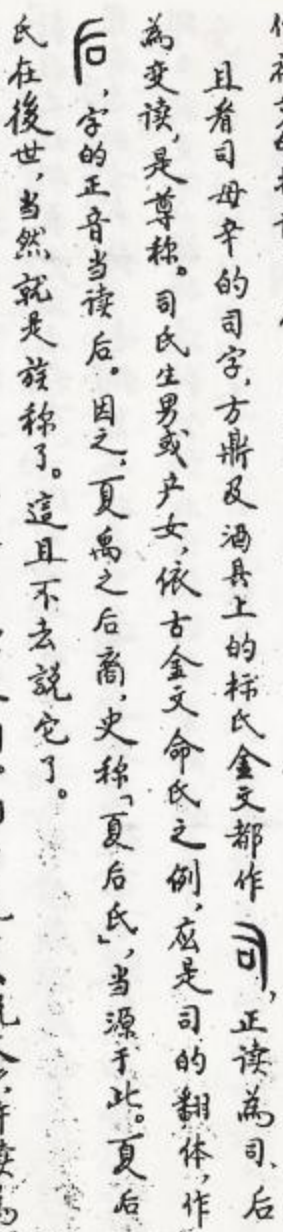 且看司母辛的司字，方鼎及酒具上的标氏金文都作司，正读為司、后
為变读，是尊称。司氏生男或产女，依古金文命氏之例，应是司的翻体，作
后，字的正音当读后。因之，夏禹之后裔，史称「夏后氏」，当源于此。夏后
氏在後世，当然就是族称了。這且不去説它了。